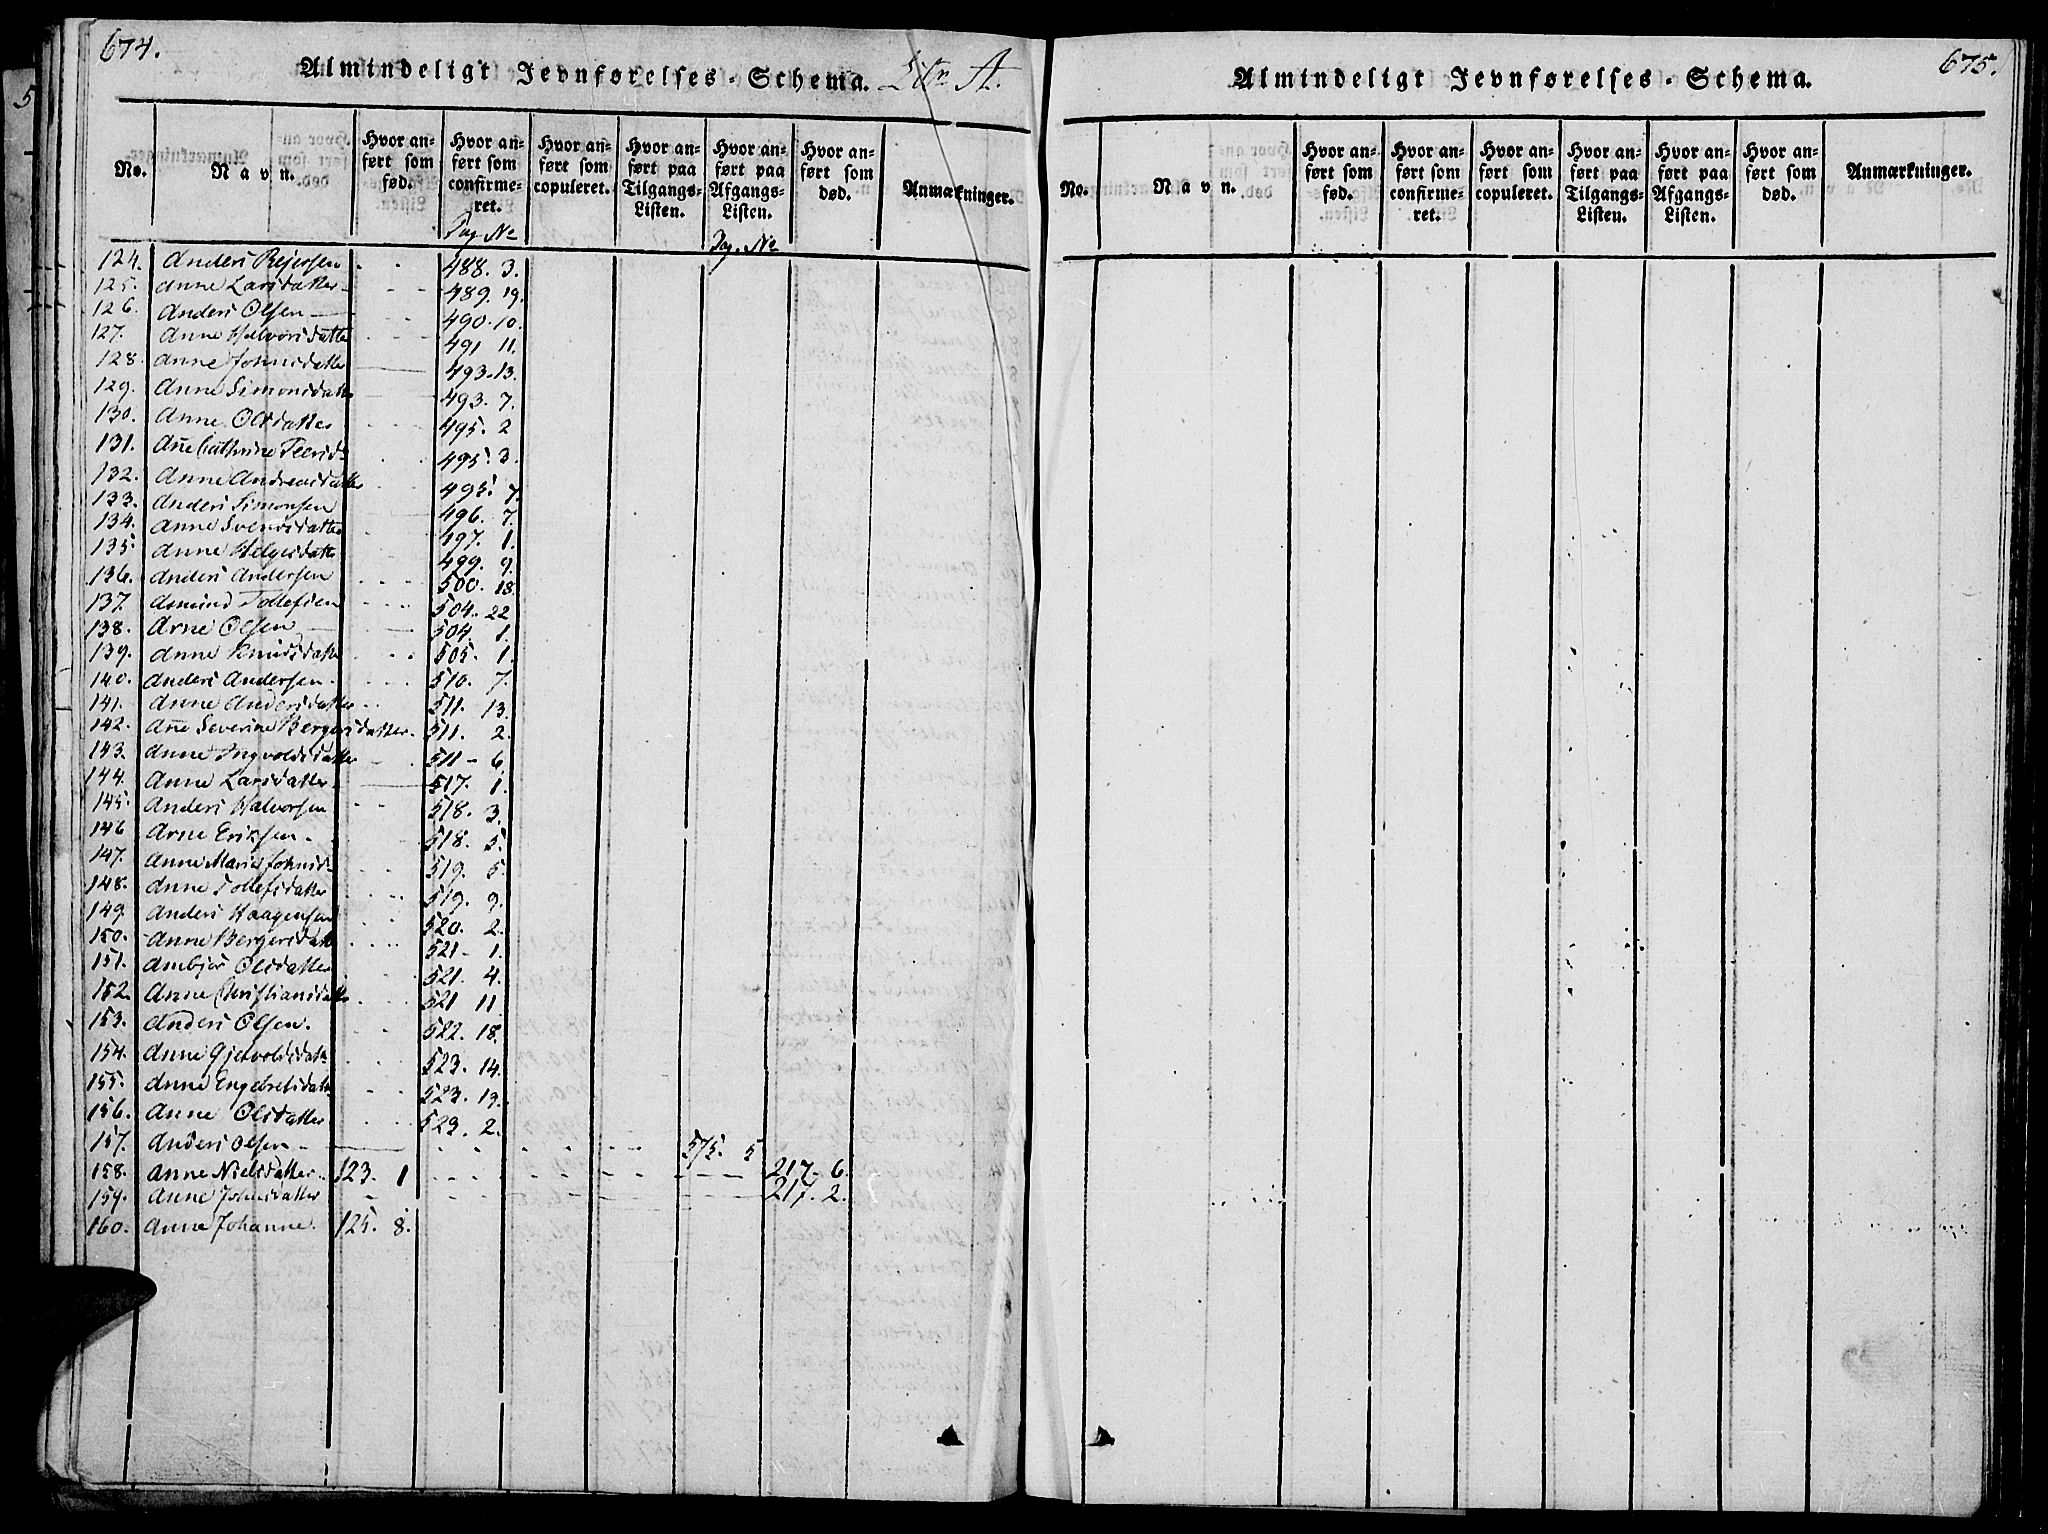 674.
Almindeligt Jevnførelses-Schema. Litr A.
No. Navn. Hvor anført som fød. Hvor anført som confirmeret. Hvor anført som copuleret. Hvor anført paa Tilgangs-Listen. Hvor anført paa Afgangs-Listen. Hvor anført som død. Anmærkninger.
Pag No Pag. No
124. Anders Rejersen 488. 3.
125. Anne Larsdatter 489. 19.
126. Anders Olsen 490. 10.
127. Anne Halvorsdatter 491 11.
128. Anne Johnsdatter 493. 13.
129. Anne Simonsdatter 493. 7.
130. Anne Olsdatter 495. 2
131. Añe Cathrine Peersd. 495. 3.
132. Anne Andreasdatter 495. 7.
133. Anders Simonsen 496. 7.
134. Anne Svendsdatter 497. 1.
135. Anne Helgesdatter 499. 9.
136. Anders Andersen 500. 18.
137. Asmund Tollefsen 504. 22
138. Arne Olsen 504. 1.
139. Anne Knudsdatter 505. 1.
140. Anders Andersen 510. 7.
141. Anne Andersdatter 511. 13.
142. Añe Severine Bergersdatter. 511. 2.
143. Anne Ingvoldsdatter 511 - 6.
144. Anne Larsdatter 517. 1.
145. Anders Halvorsen 518. 3.
146 Arne Eriksen 518. 5.
147. Anne Marie Johnsd. 519. 5.
148. Anne Tollefsdatter 519. 9.
149. Anders Haagensen 520. 2.
150. Anne Bergersdatt 521 - 1.
151. Ambjør Olsdatter 521. 4.
152. Anne Christiansdatter 521 11.
153. Anders Olsen. 522. 18.
154. Anne Gjervoldsdatt 523. 14.
155. Anne Engebretsdatt 523. 19.
156. Anne Olsdatter 523. 2.
157. Anders Olsen 575. 5
158. Anne Nielsdatter 123. 1 217. 6.
159. Anne Johnsdatter 217. 2.
160. Anne Johanne. 125. 8.
675.
Almindeligt Jevnførelses-Schema.
No. Navn. Hvor anført som fød. Hvor anført som confirmeret. Hvor anført som copuleret. Hvor anført paa Tilgangs-Listen. Hvor anført paa Afgangs-Listen. Hvor anført som død. Anmærkninger.